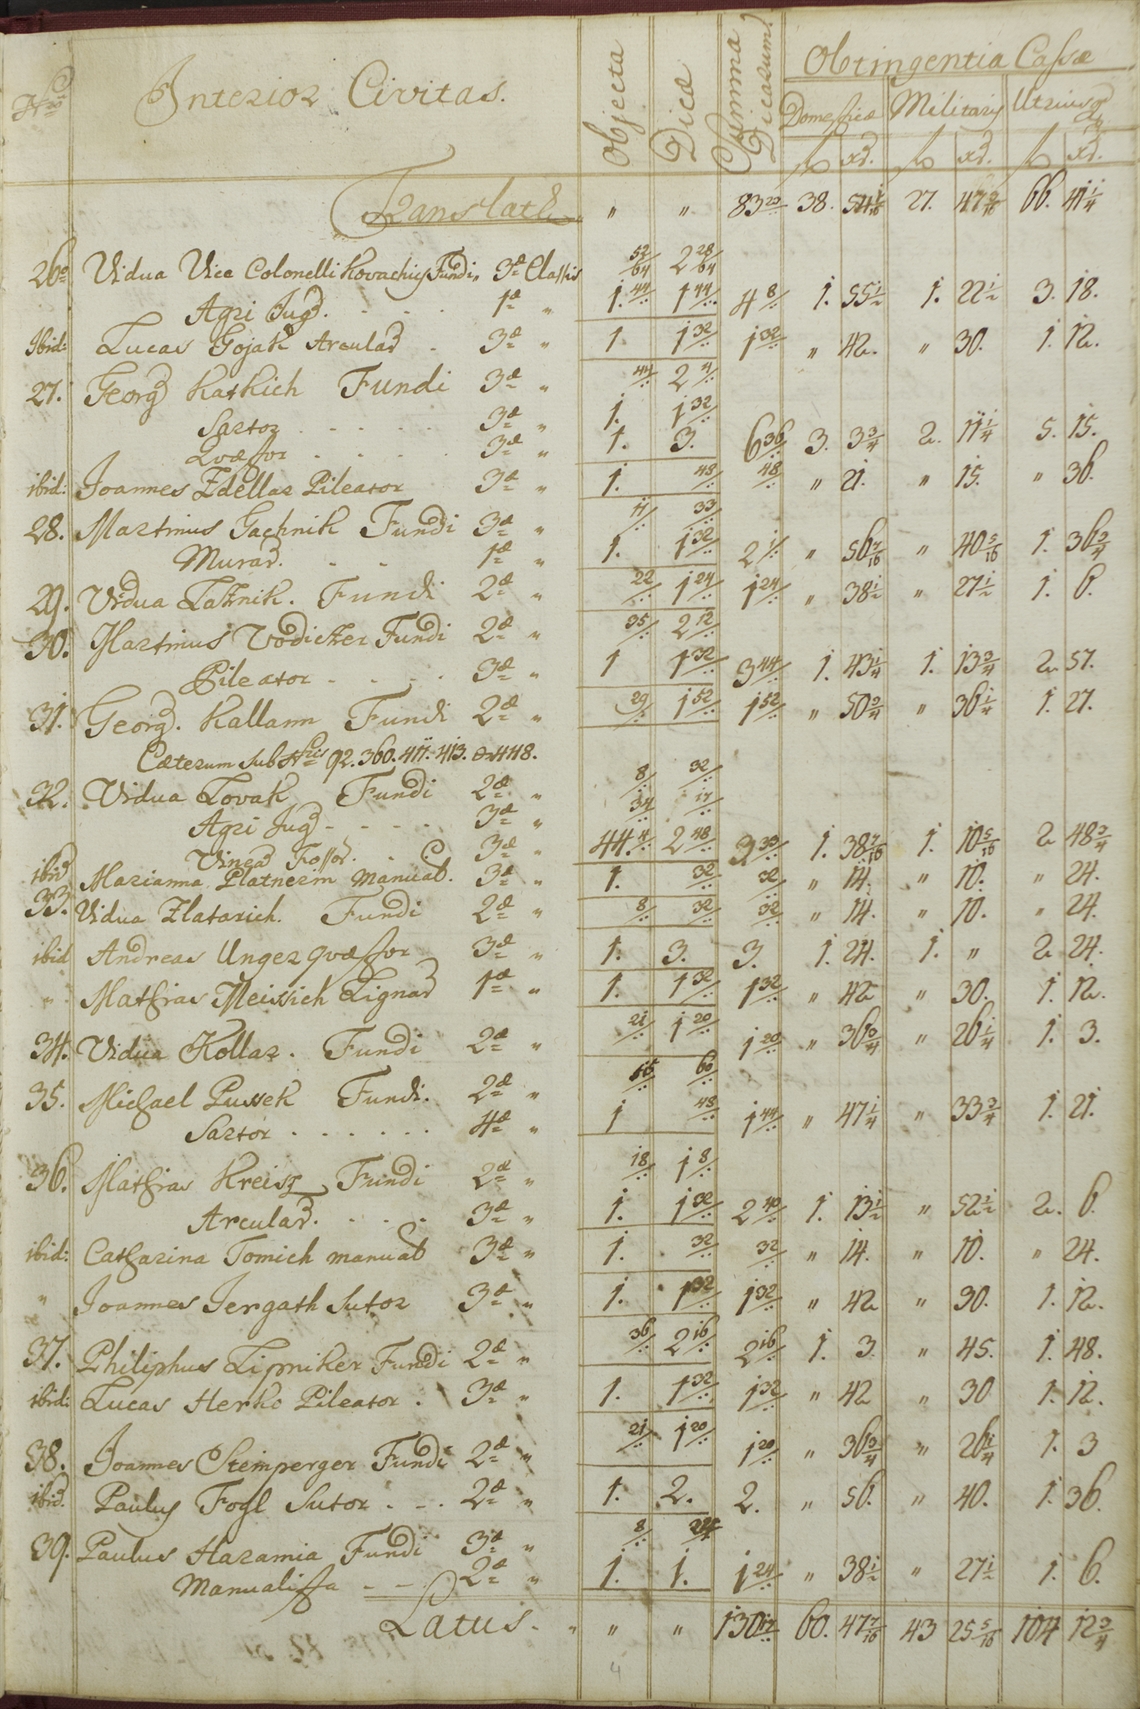 Nro Interior Civitas. Objecta Dicæ Summa Dicarum Obtingentia Cassæ
Domesticæ Militaris Utriusq
f xr. f xr. f xr.
Translatū " " 83 20/.. 38. 27. 66. 41 1/4
26. Vidua Vice Colonelli Kovachics Fundi 3æ Classis 52/64 2 28/64
Agri Jug. . . . 1æ " 1. 44/.. 1 44/.. 4 8/.. 1. 55 1/2 1. 22 1/2 3. 18.
Ibid: Lucas Gojak Arculad . 3æ " 1. 1 32/.. 1 32/.. " 42. " 30. 1. 12.
27. Georg Katkich Fundi 3æ " 44/.. 2 4/..
Sartor . . . . . 3æ " 1. 1 32/..
Quæstor . . . . . 3æ " 1. 3. 6 36/.. 3. 3 3/4 2. 11 1/4 5. 15.
ibid: Joannes Zdellar Pileator 3æ " 1. 48/.. 48/.. " 21. " 15. " 36.
28. Martinus Gachnik Fundi 3æ " 11/.. 33/..
Murad. . . . 1æ " 1. 1 32/.. " 56 " 40 5/16 1. 36 3/4
29. Vidua Fundi 2æ " 22/.. 1 24/.. 1 24/.. " 38 1/2 " 27 1/2 1. 6.
30. Martinus Vodiczer Fundi 2æ " 35/.. 2 12/..
Pileator . . . . 3æ " 1 1 32/.. 3 44/.. 1. 43 1/4 1. 13 3/4 2. 57.
31. Georg. Kallann Fundi 2æ " 29/.. 1 52/.. 1 52/.. " 50 3/4 " 36 1/4 1. 27.
Cæterum sub Nris 92. 360. 411. 413. et 418.
32. Vidua Lovak Fundi 2æ " 8/.. 32/..
Agri Jug . . . . 3æ " 34/.. 17/..
Vinead Fossor. . . 3æ " 44. 4/.. 2 48/.. 1. 38 7/16 1. 10 5/16 2 48 3/4
ibid Marianna Platnerin manual. 3æ " 1. 32/.. 32/.. " 14. " 10. " 24.
33. Vidua Zlatarich. Fundi 2æ " 8/.. 32/.. 32/.. " 14. " 10. " 24.
ibid Andreas Unger quæstor 3æ " 1. 3. 3. 1. 24. 1. " 2 24.
" Mathias Meissich Lignad 1æ " 1. 1 32/.. 1 32/.. " 42 " 30. 1. 12.
34. Vidua Kollar. Fundi 2æ " 21/.. 1 20/.. 1 20/.. " 36 3/4 " 26 1/4 1. 3.
35. Michael Pussek Fundi. 2æ " 60/..
Sartor . . . . . . 4æ " 1 48/.. 1 44/.. " 47 1/4 " 33 3/4 1. 21.
36. Mathias Kreisz Fundi 2æ " 18/.. 1 8/..
Arculad. . . . 3æ " 1. 1 32/.. 2 40/.. 1. 13 1/2 " 52 1/2 2. 6.
ibid: Catharina Tomich manual 3æ " 1. 32/.. 32/.. " 14. " 10. " 24.
" Joannes Jergath Sutor 3æ " 1. 1 32/.. 1 32/.. " 42 " 30. 1. 12.
37. Philiphus Lipniker Fundi 2æ " 36/.. 2 16/.. 2 16/.. 1. 3. " 45. 1. 48.
ibid: Lucas Herko Pileator . 3æ " 1. 1 32/.. 1 32/.. " 42 " 30 1. 12.
38. Joannes Stemperger Fundi 2æ " 21/.. 1 20/.. 1 20/.. " 36 3/4 " 26 1/4 1. 3
ibid. Paulus Fogl Sutor . - . 2æ " 1. 2. 2. " 56. " 40. 1. 36.
39. Paulus Haramia Fundi 3æ " 8/..
Manualista - - . 2æ " 1. 1. 1 24/.. " 38 1/2 " 27 1/2 1. 6.
Latus. " " " 130 17/.. 60. 47 7/16 43 25 5/16 104 12 3/4